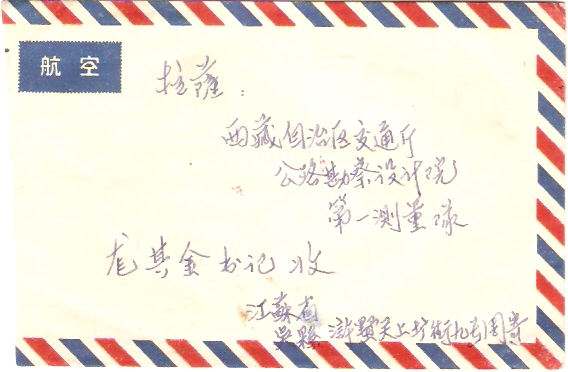 航空
拉薩:
西藏自治区交通厅
公路勘察设计院
第一测量隊
龙其金书记收
江蘇省
吳縣 滸墅关上塘街九号周寄